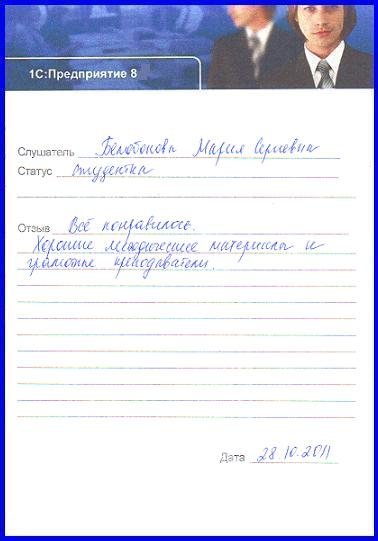 1С:Предприятие 8
Слушатель Белобонова Мария Сергевна
Статус студентка
Отзыв Всё понравилось.
Хорошие методические материалы и
грамотные преподаватели.
Дата 28.10.2011